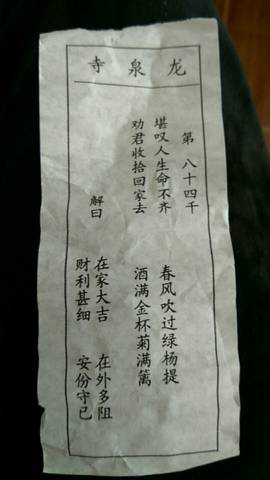 龙泉寺
第八十四千
堪叹人生命不齐 春风吹过绿杨提
劝君收拾回家去 酒满金杯菊满篱
解曰
在家大吉 在外多阻
财利甚细 安份守已